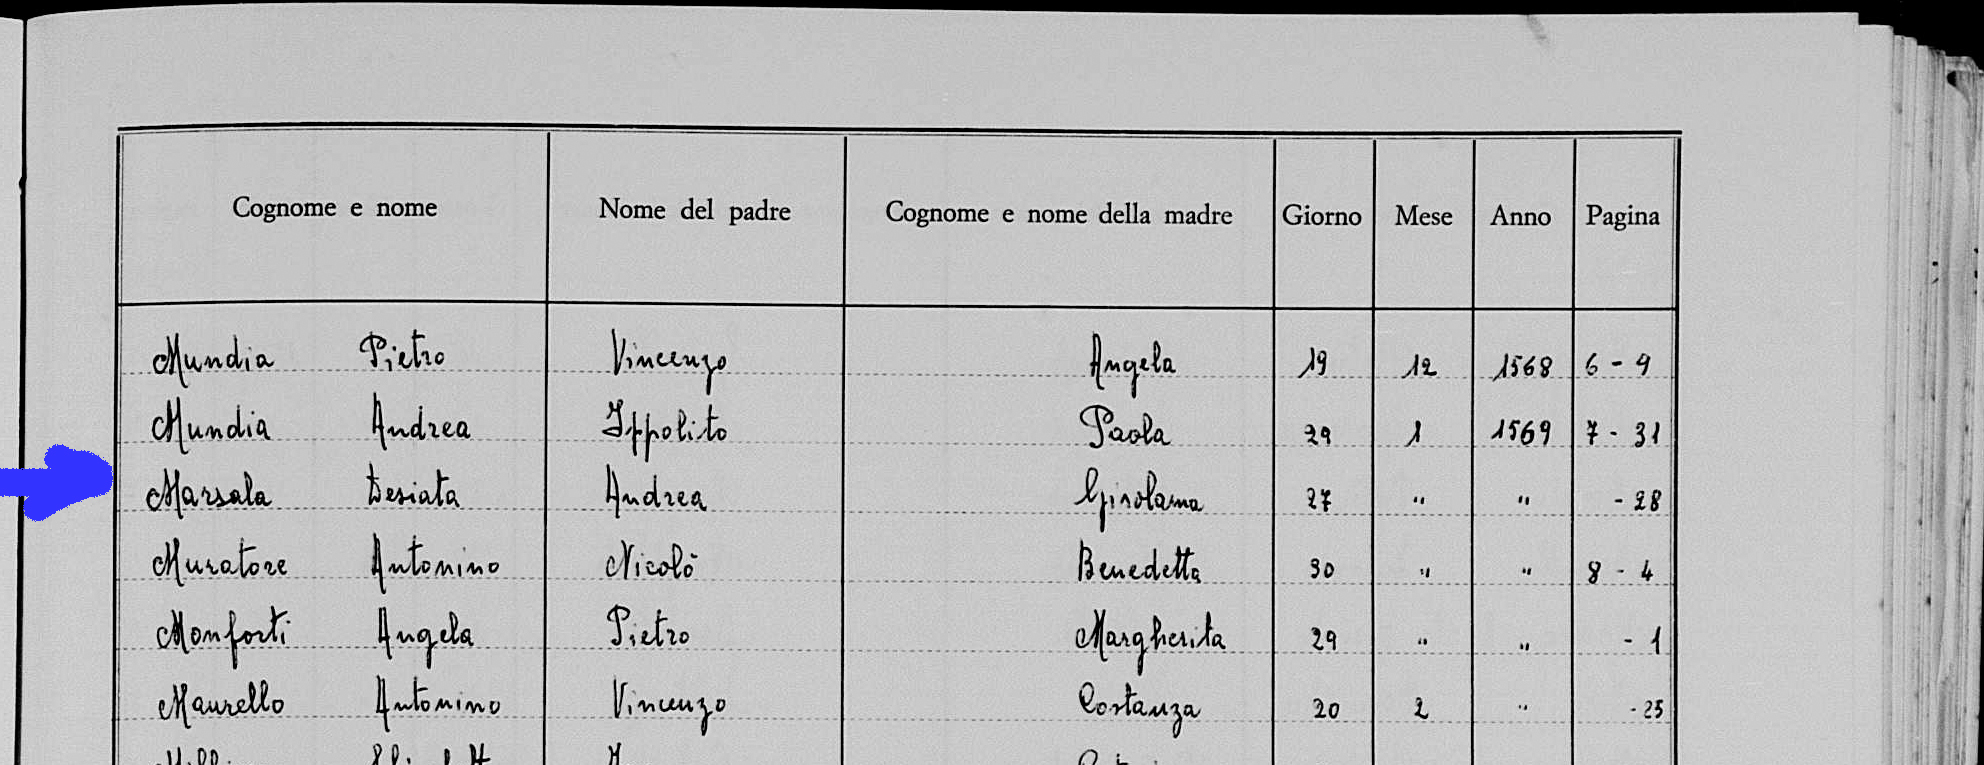 Cognome e nome Nome del padre Cognome e nome della madre Giorno Mese Anno Pagina
Mundia Pietro Vincenzo Angela 19 12 1568 6 - 9
Mundia Andrea Ippolito Paola 29 1 1569 7 - 31
Marsala Desiata Andrea Girolama 27 " " - 28
Muratore Antonino Nicolò Benedetta 30 " " 8 - 4
Monforti Angela Pietro Margherita 29 " " - 1
Maurello Antonino Vincenzo Costanza 20 2 " - 25